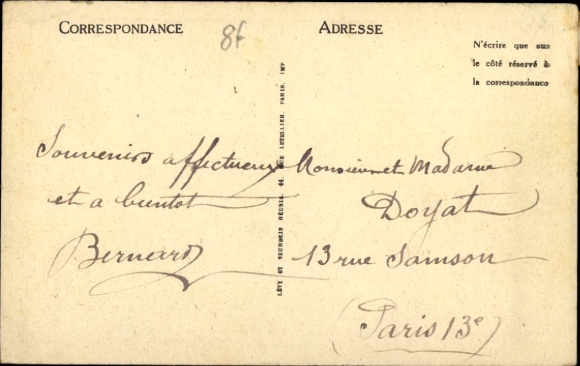 CORRESPONDANCE
8f
ADRESSE
N'écrire que sur
le côté réservé à
la correspondance
Souvenirs affectueux
et a bientot
Bernard
LÉVY ET NEURDEIN RÉUNIS, 44, RUE LETELLIER, PARIS. IMP
Monsieur et Madame
Doyat
13 rue Samson
(Paris 13e)